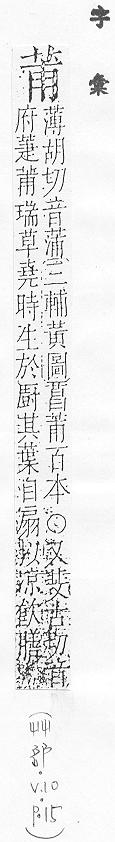 字彙
莆
薄胡切音蒲三輔黃圖菖莆百本○又斐古切音
府萐莆瑞草堯時生於厨其葉自扇以凉飲膳
(艸部・V.10・P.15)